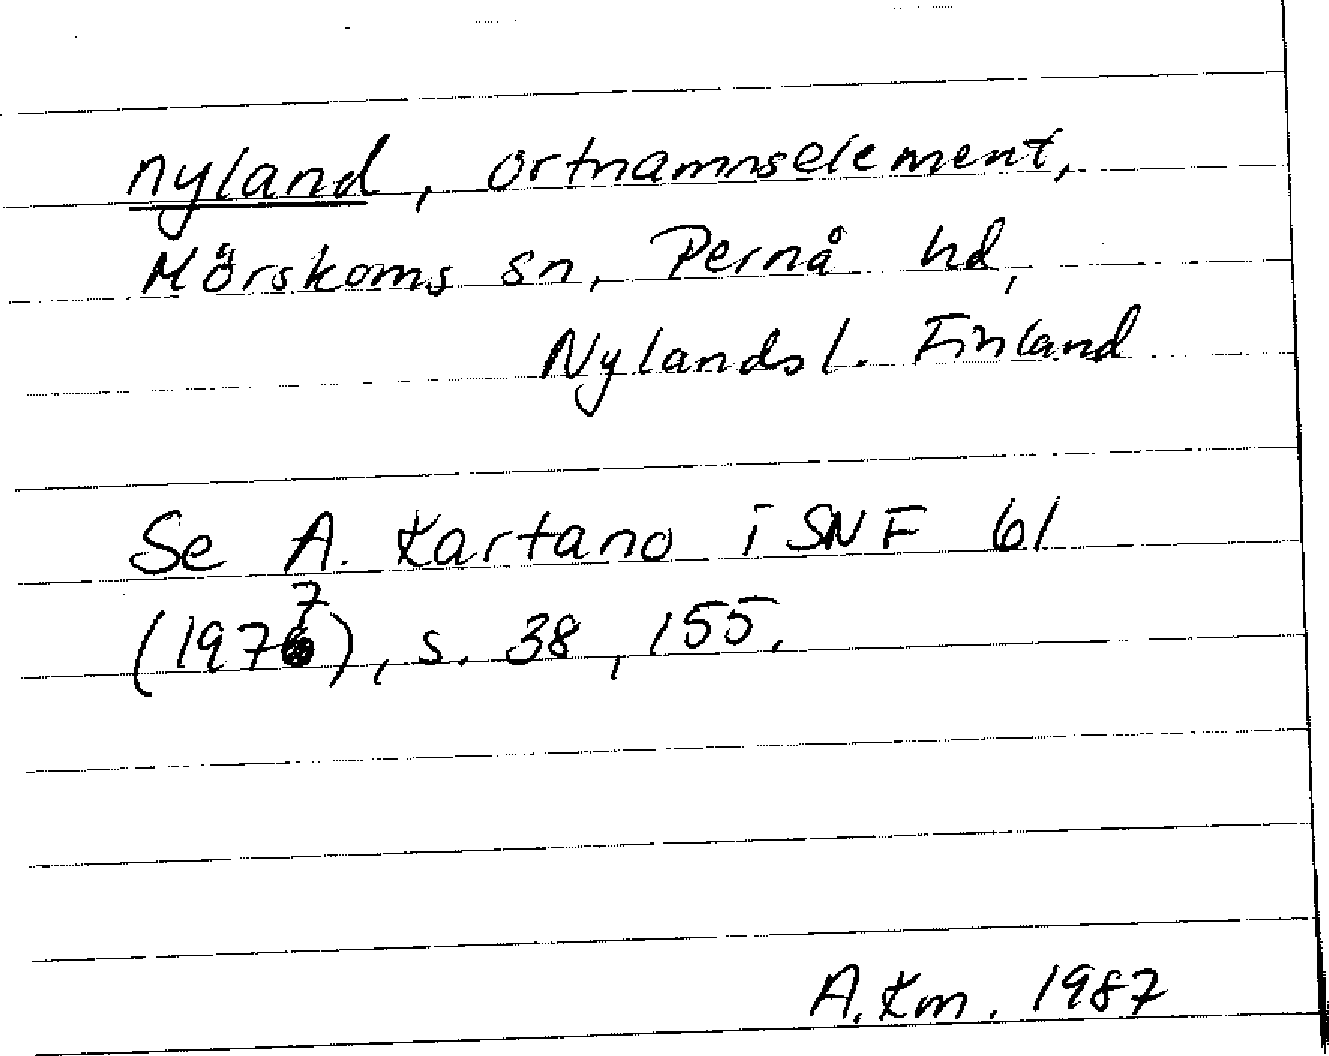 nyland, ortnamnselement,
Mörskoms sn, Pernå hd,
Nylands l. Finland
Se A. Kartano i SNF 61
(1977), s. 38, 155.
A. Km. 1987